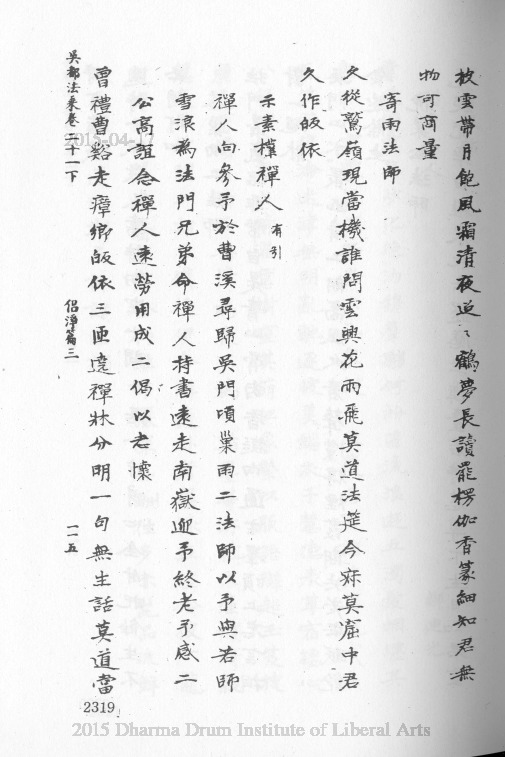 披雲帶月飽風霜清夜迢々鶴夢長讀罷楞伽香篆細知君無
物可商量
寄雨法師
久從鷲嶺現當機誰問雲興花雨飛莫道法筵今寂莫窟中君
久作皈依
示素樸禪人 有引
禪人向參予於曹溪尋歸吳門頃巢雨二法師以予與若師
雪浪為法門兄弟命禪人持書遠走南嶽迎予終老予感二
公高誼念禪人遠勞用成二偈以老懷
曾禮曹谿走瘴鄉皈依三匝遶禪牀分明一句無生話莫道當
吳都法乘卷二十一下
侶淨篇三
一一五
2015-04-17
2319
2015 Dharma Drum Institute of Liberal Arts